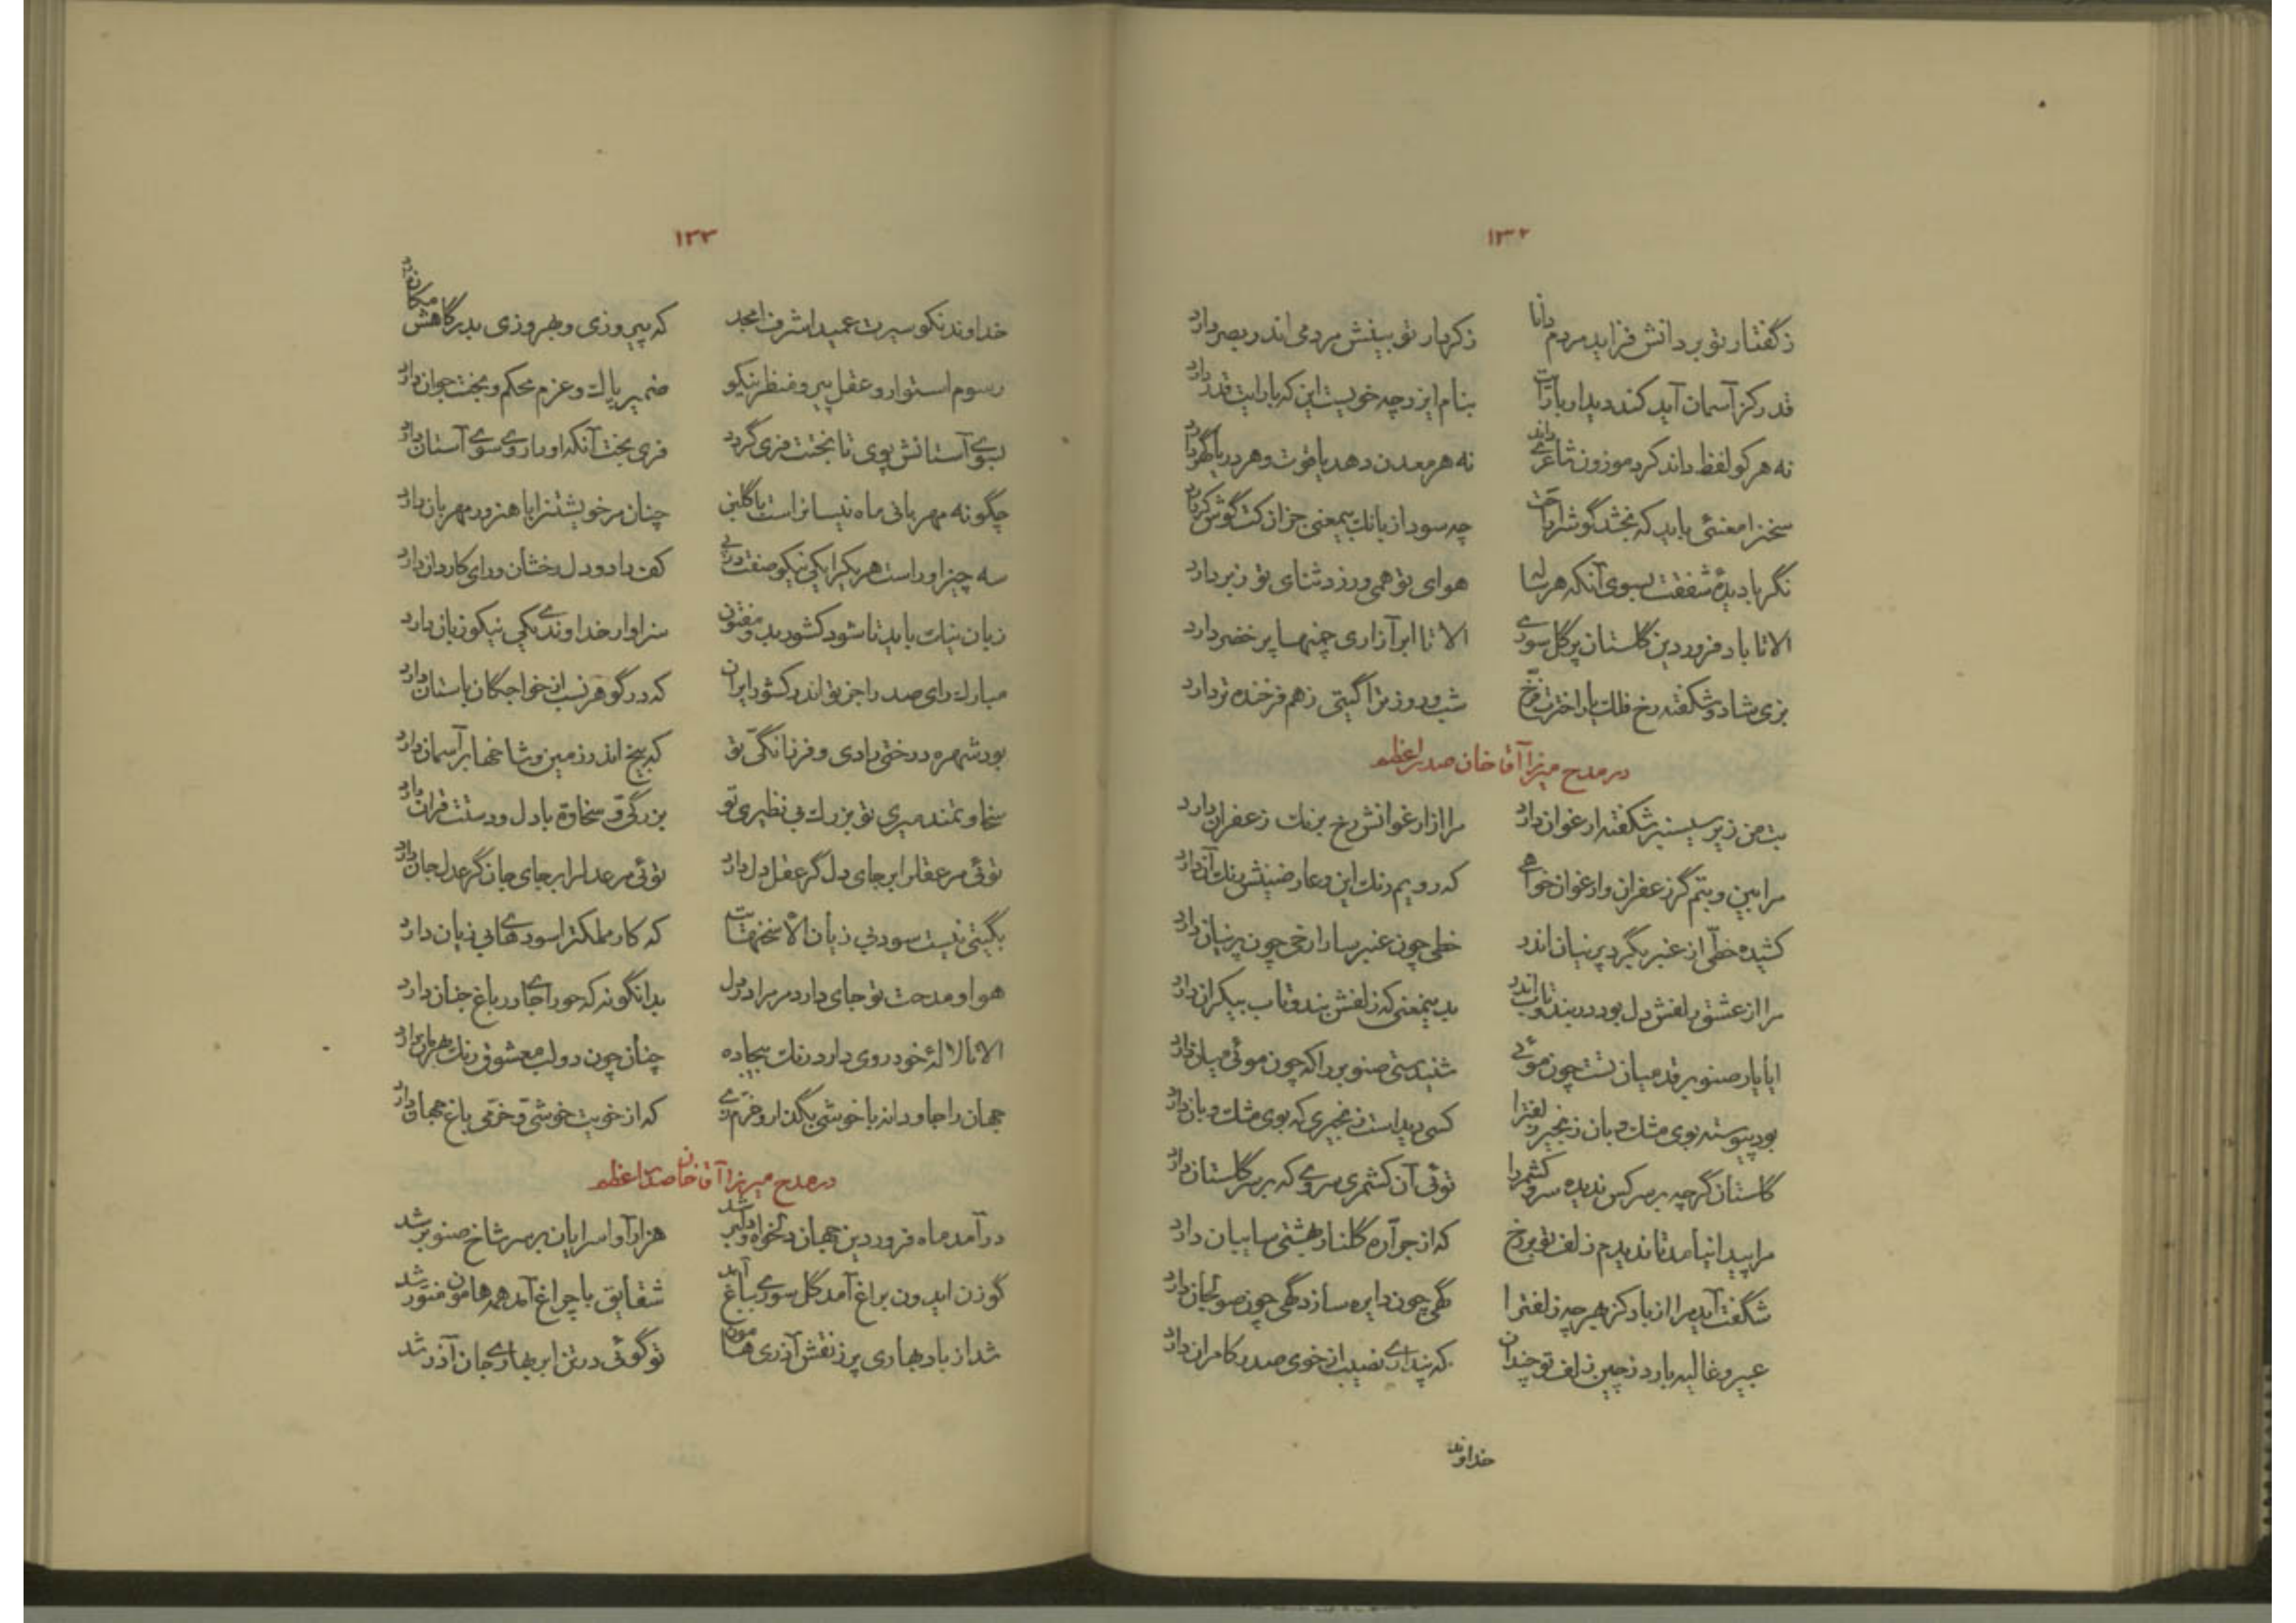 ۱۳۲
زگفتار تو بر دانش فزاید مردم دانا زکردار تو بینش مردمی اندر بصر دارد
قدر کز آسمان آید کند دیدار با رایت بنام ایزد چه خویست این که با رایت قدر دارد
نه هر کو لفظ داند کرد موزون شاعری داند نه هر معدن دهد یاقوت و هر دریا گهر دارد
سخنرا معنئی باید که بخشد گوشرا چه سود از بانك بیمعنی جز از کت گوش کر دارد
نگر با دیدهٔ شفقت بسوی آنکه هر ساله هوای تو همی ورزد ثنای تو زبر دارد
الا تا باد فروردین گلستان پر گل سوری الا تا ابر آزاری چمنها پر خضر دارد
بزی شاد و شکفته رخ فلك یار اخترت فرخ شب و روز ترا گیتی زهم فرخنده تر دارد
در مدح میرزا آقا خان صدر اعظم
بت من زیر سیسنبر شکفته ارغوان دارد مرا زار غوانش رخ برنك زعفران دارد
مرا بین و بتم گر زعفران و ارغوان خواهی که رویم رنك این و عارضینش رنك آن دارد
کشیده خطی از عنبر بگرد پرنیان اندر خطی چون عنبر سارا رخی چون پرنیان دارد
مرا از عشق زلفش دل بود در بند و تاب اندر بدینمعنی که زلفش بند و تاب بیکران دارد
ایا یار صنوبر قد میان تست چون موئی شنیدستی صنوبر را که چون موئی میان دارد
بود پیوسته بوی مشك و بان زنجیر زلفترا کسی دیداست زنجیری که بوی مشك و بان دارد
گلستان گرچه بر سر کس ندیده سرو کشمر را توئی آن کشمری سروی که بر سر گلستان دارد
مرا پیدا نیامد تا ندیدم زلف تو بر رخ که از جراره گلنار بهشتی سایبان دارد
شگفت آید مرا از باد کز هر چه زلفترا گهی چون دایره سازد گهی چون صولجان دارد
عبیر و غالیه بارد زچین زلف تو چندان که پنداری نصیب از خوی صدر کامران دارد
خداوند
۱۳۳
خداوند نکو سیرت عمید اشرف امجد که پیروزی و بهروزی بدرگاهش مکان دارد
رسوم استوار و عقل پیر و منظر نیکو ضمیر پاك و عزم محکم و بخت جوان دارد
بسوی آستانش پوی تا بختت فری گردد فری بخت آنکه او را روی سوی آستان دارد
چگونه مهربانی ماه نیسانراست با گلبن چنان مر خویشتنرا با هنرور مهربان دارد
سه چیز او راست هر یکرا یکی نیکو صفت در پی کف راد و دل رخشان و رای کاردان دارد
زبان نیك باید تا شود کشور بدو مفتون سزاوار خداوندی یکی نیکو زبان دارد
مبارك رای صدرا جز تو اندر کشور ایران که در گوهر نسب از خواجگان باستان دارد
بود شهره درختی رادی و فرزانگی تو که بیخ اندر زمین و شاخها بر آسمان دارد
سخاوتمند میری تو بزرك بی نظیری تو بزرگی و سخاوة با دل و دستت قران دارد
توئی مر عقلرا بر جای دل گر عقل دل دارد توئی مر عدلرا بر جای جان گر عدل جان دارد
بگیتی نیست سود بی زیان الا سخنهایت که کار مملکترا سودهای بی زیان دارد
هوا و مدحت تو جای دارد مر مرا در دل بدانگونه که حورا جا در باغ جنان دارد
الا تا لالهٔ خود روی دارد رنك بیجاده چنان چون دو لب معشوق رنك بهرمان دارد
جهان را جاودانه با خوشی بگذار و خرم زی که از خویت خوشی و خرمی باغ جهان دارد
در مدح میرزا آقا خان صدر اعظم
در آمد ماه فروردین جهان دلخواه و دلبر شد هزار آوا سرایان بر سر شاخ صنوبر شد
گوزن ایدون براغ آمد گل سوری بباغ آید شقایق با چراغ آمد همه هامون منور شد
شد از باد بهاری پر ز نقش آذری هامون تو گوئی در تن ابر بهاری جان آذر شد